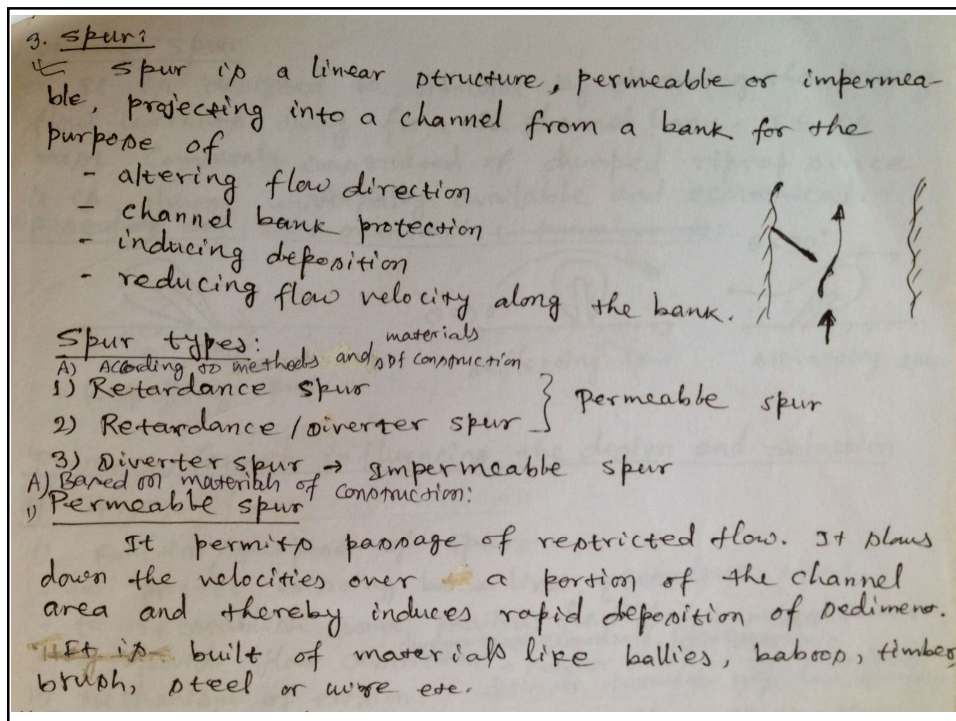 3. Spur:
Spur is a linear structure, permeable or impermea-
ble, projecting into a channel from a bank for the
purpose of
- altering flow direction
channel bank protection
- inducing deposition
- reducing flow velocity along the bank.
Spur types:
A) According to methods and materials of construction
1) Retardance spur
2) Retardance / Diverter spur } Permeable spur
3) Diverter spur → Impermeable spur
A) Based on materials of construction:
1) Permeable spur
It permits passage of restricted flow. It slows
down the velocities over a portion of the channel
area and thereby induces rapid deposition of sediment.
It is built of materials like ballies, baboos, timber,
brush, steel or wire etc.